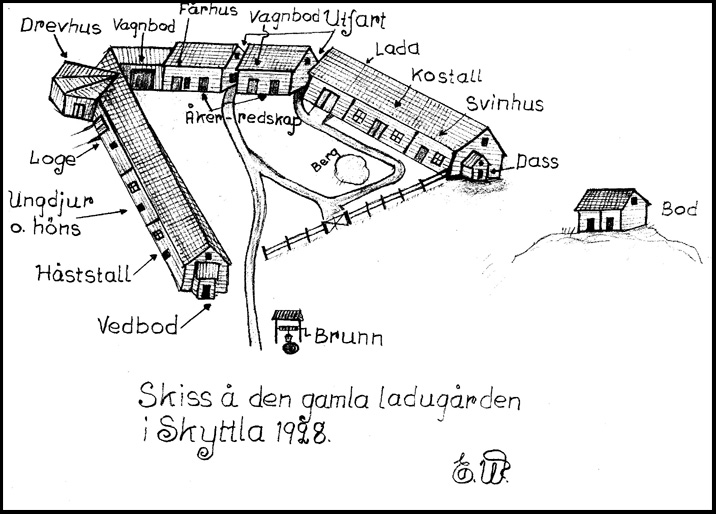 Drevhus
Vagnbod
Fårhus
Vagnbod
Utfart
Lada
Kostall
Svinhus
Åker-redskap
Berg
Dass
Loge
Ungdjur
o. höns
Häststall
Vedbod
Bod
Brunn
Skiss å den gamla ladugården
i Skyttla 1928.